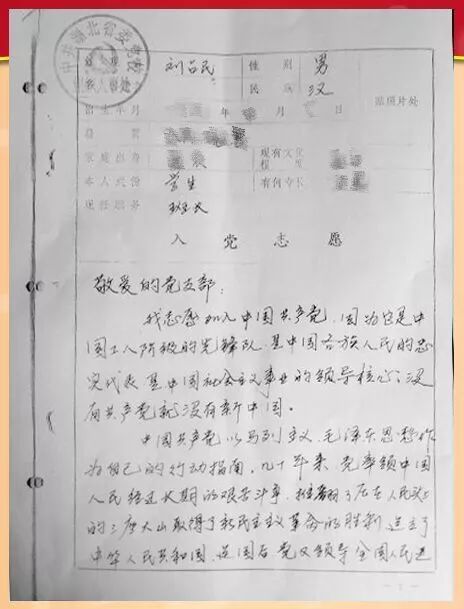 中共湖北省委党校
刘占民 性别 男
民族 汉
出生年月 年 月 日 贴照片处
家庭出身 现有文化程度
本人成份 学生 有何专长
现任职务 班长
入党志愿
敬爱的党支部:
我志愿加入中国共产党,因为它是中
国工人阶级的先锋队,是中国各族人民的忠
实代表,是中国社会主义事业的领导核心。没
有共产党就没有新中国。
中国共产党以马列主义、毛泽东思想作
为自己的行动指南,几十年来,党率领中国
人民经过长期的艰苦斗争,推翻了压在人民头上
的三座大山取得了新民主主义革命的胜利,建立了
中华人民共和国,建国后,党又领导全国人民进